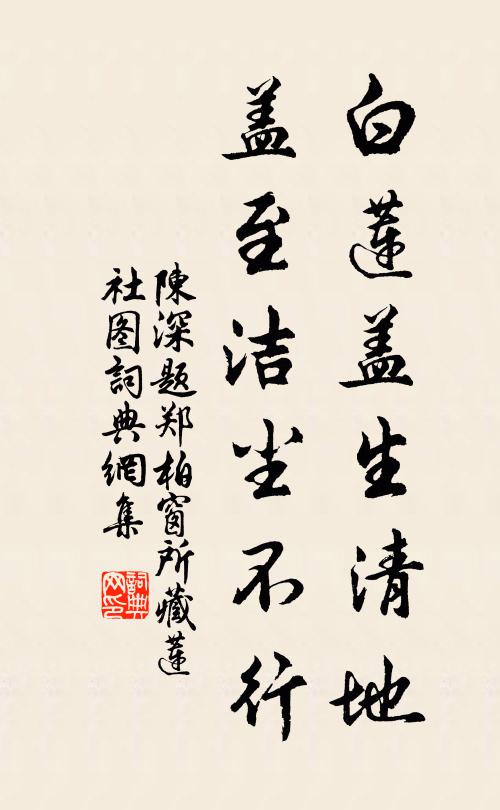 白莲盖生清地
盖至洁尘不行
陳深题郑柏窗所藏莲
社图詞典網集
詞典
网印